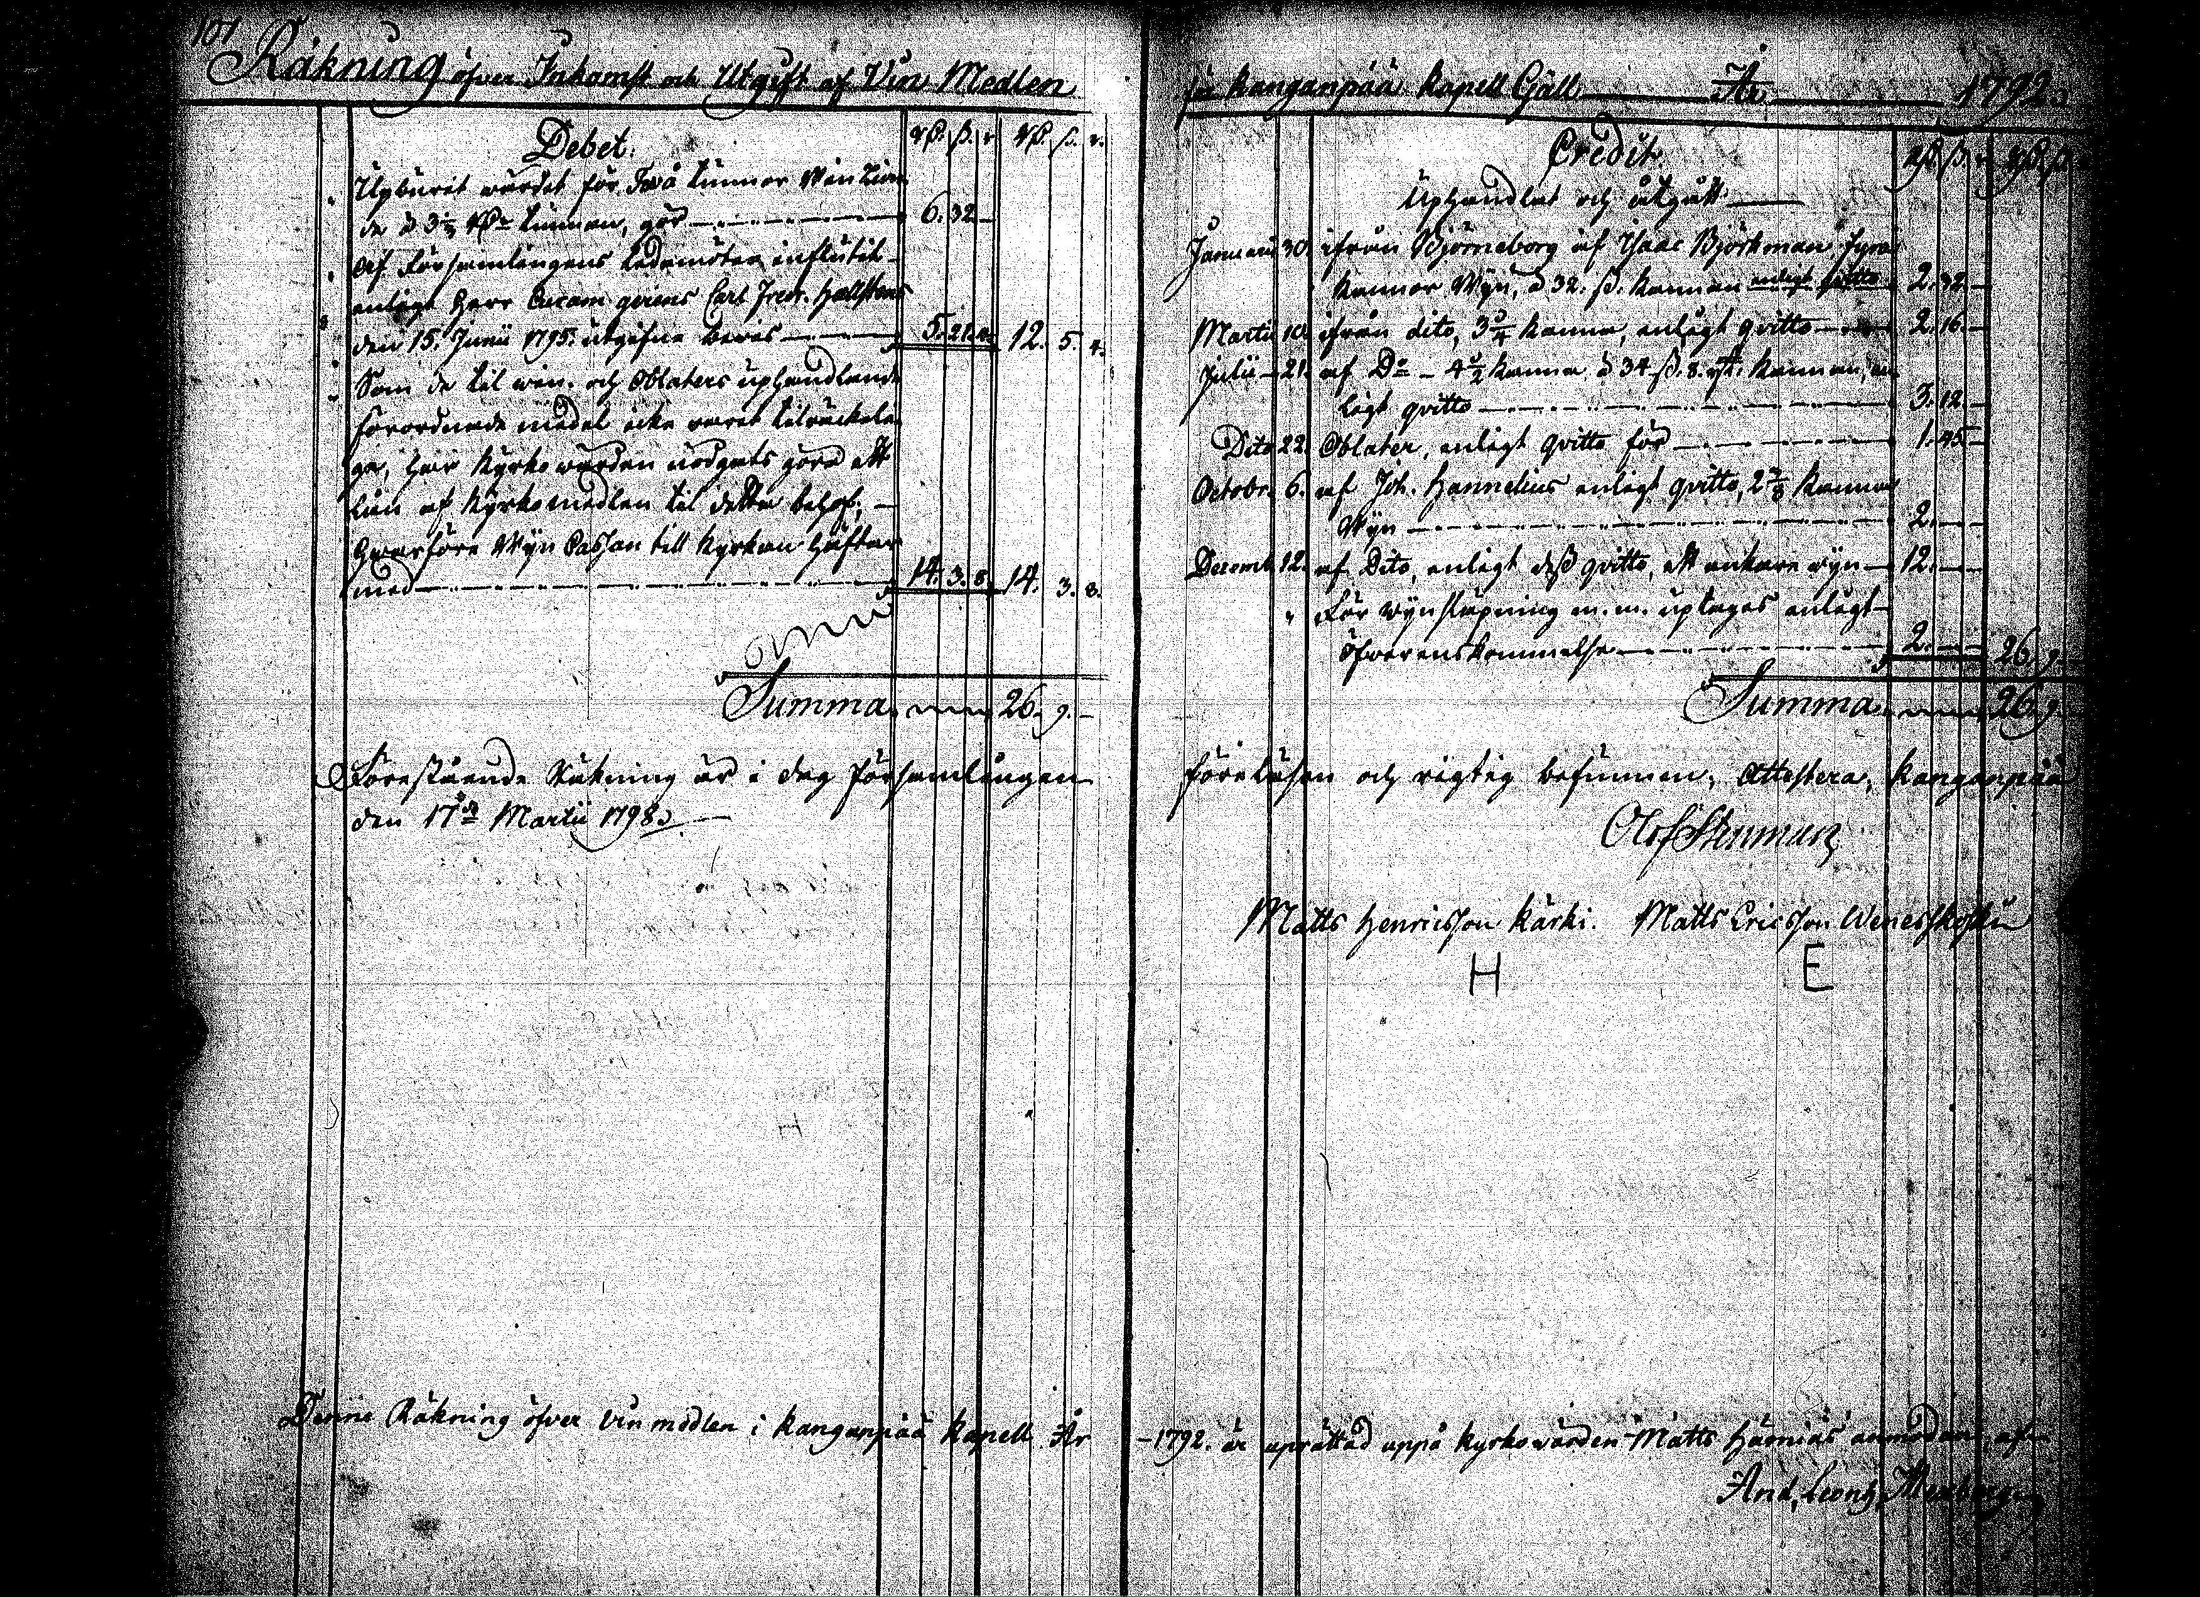 107
Räkning öfver Inkomst och Utgift af Vin Medlen
Debet.
Rd. ß. r. Rd. ß. r.
Upburit wärdet för Två tunnor Win Län
de à 3 1/3 Rd tunnan, gör 6. 32 —
Af Församlingens Ledamöter influtit
enligt Herr Carl Fredr. Hællstens
den 15. Junii 1795. utgifne bevis 5. 21. 4. 12. 5. 4.
Som de til win- och Oblaters uphandlande
förordnade medel icke varit tilräckeli-
ga, har Kyrkowärden nödgats göra ett
Lån af Kyrkomedlen til detta behof,
hwarföre Wyn Cassan till Kyrkan häftar
med 14. 3. 8. 14. 3. 8.
Summa 26. 9. —
Förestående Räkning är i dag församlingen
den 17de Martii 1798.
Denne Räkning öfver vin medlen i Kanganpää Kapell År
för Kanganpää Kapell Gäll År 1792.
Credit.
Rd. ß. r. Rd. ß.
Uphandlat och utgått
Januarii 30. ifrån Björneborg af Isaac Björkman, fyra
kannor Wyn, à 32. ß. kannan enligt qvitto 2. 32. —
Martii 10. ifrån dito, 3 3/4 kanna, enligt qvitto 2. 16. —
Julii 21. af Do 4 1/2 kanna à 34 ß. 8. rst. kannan, en-
ligt qvitto 3. 12. —
Dito 22. Oblater, enligt qvitto för 1. 45. —
Octobr. 6. af Joh. Hannelius enligt qvitto, 2 7/8 kanna
Wyn 2. — —
Decemb. 12. af Dito, enligt dess qvitto, ett ankare wyn 12. — —
För wyn släpning m. m. uptages enligt
öfverenskommelse 2. — — 26. 9.
Summa 26. 9.
föreläsen och rigtig befunnen; Attestera, Kanganpää
Olof Stenman
Matts Henricsson Kärki. Matts Ericsson Wenesskoski
H E
1792. är uprättad uppå Kyrkovärden Matts Harnias anmodan, af
And. Leonh.